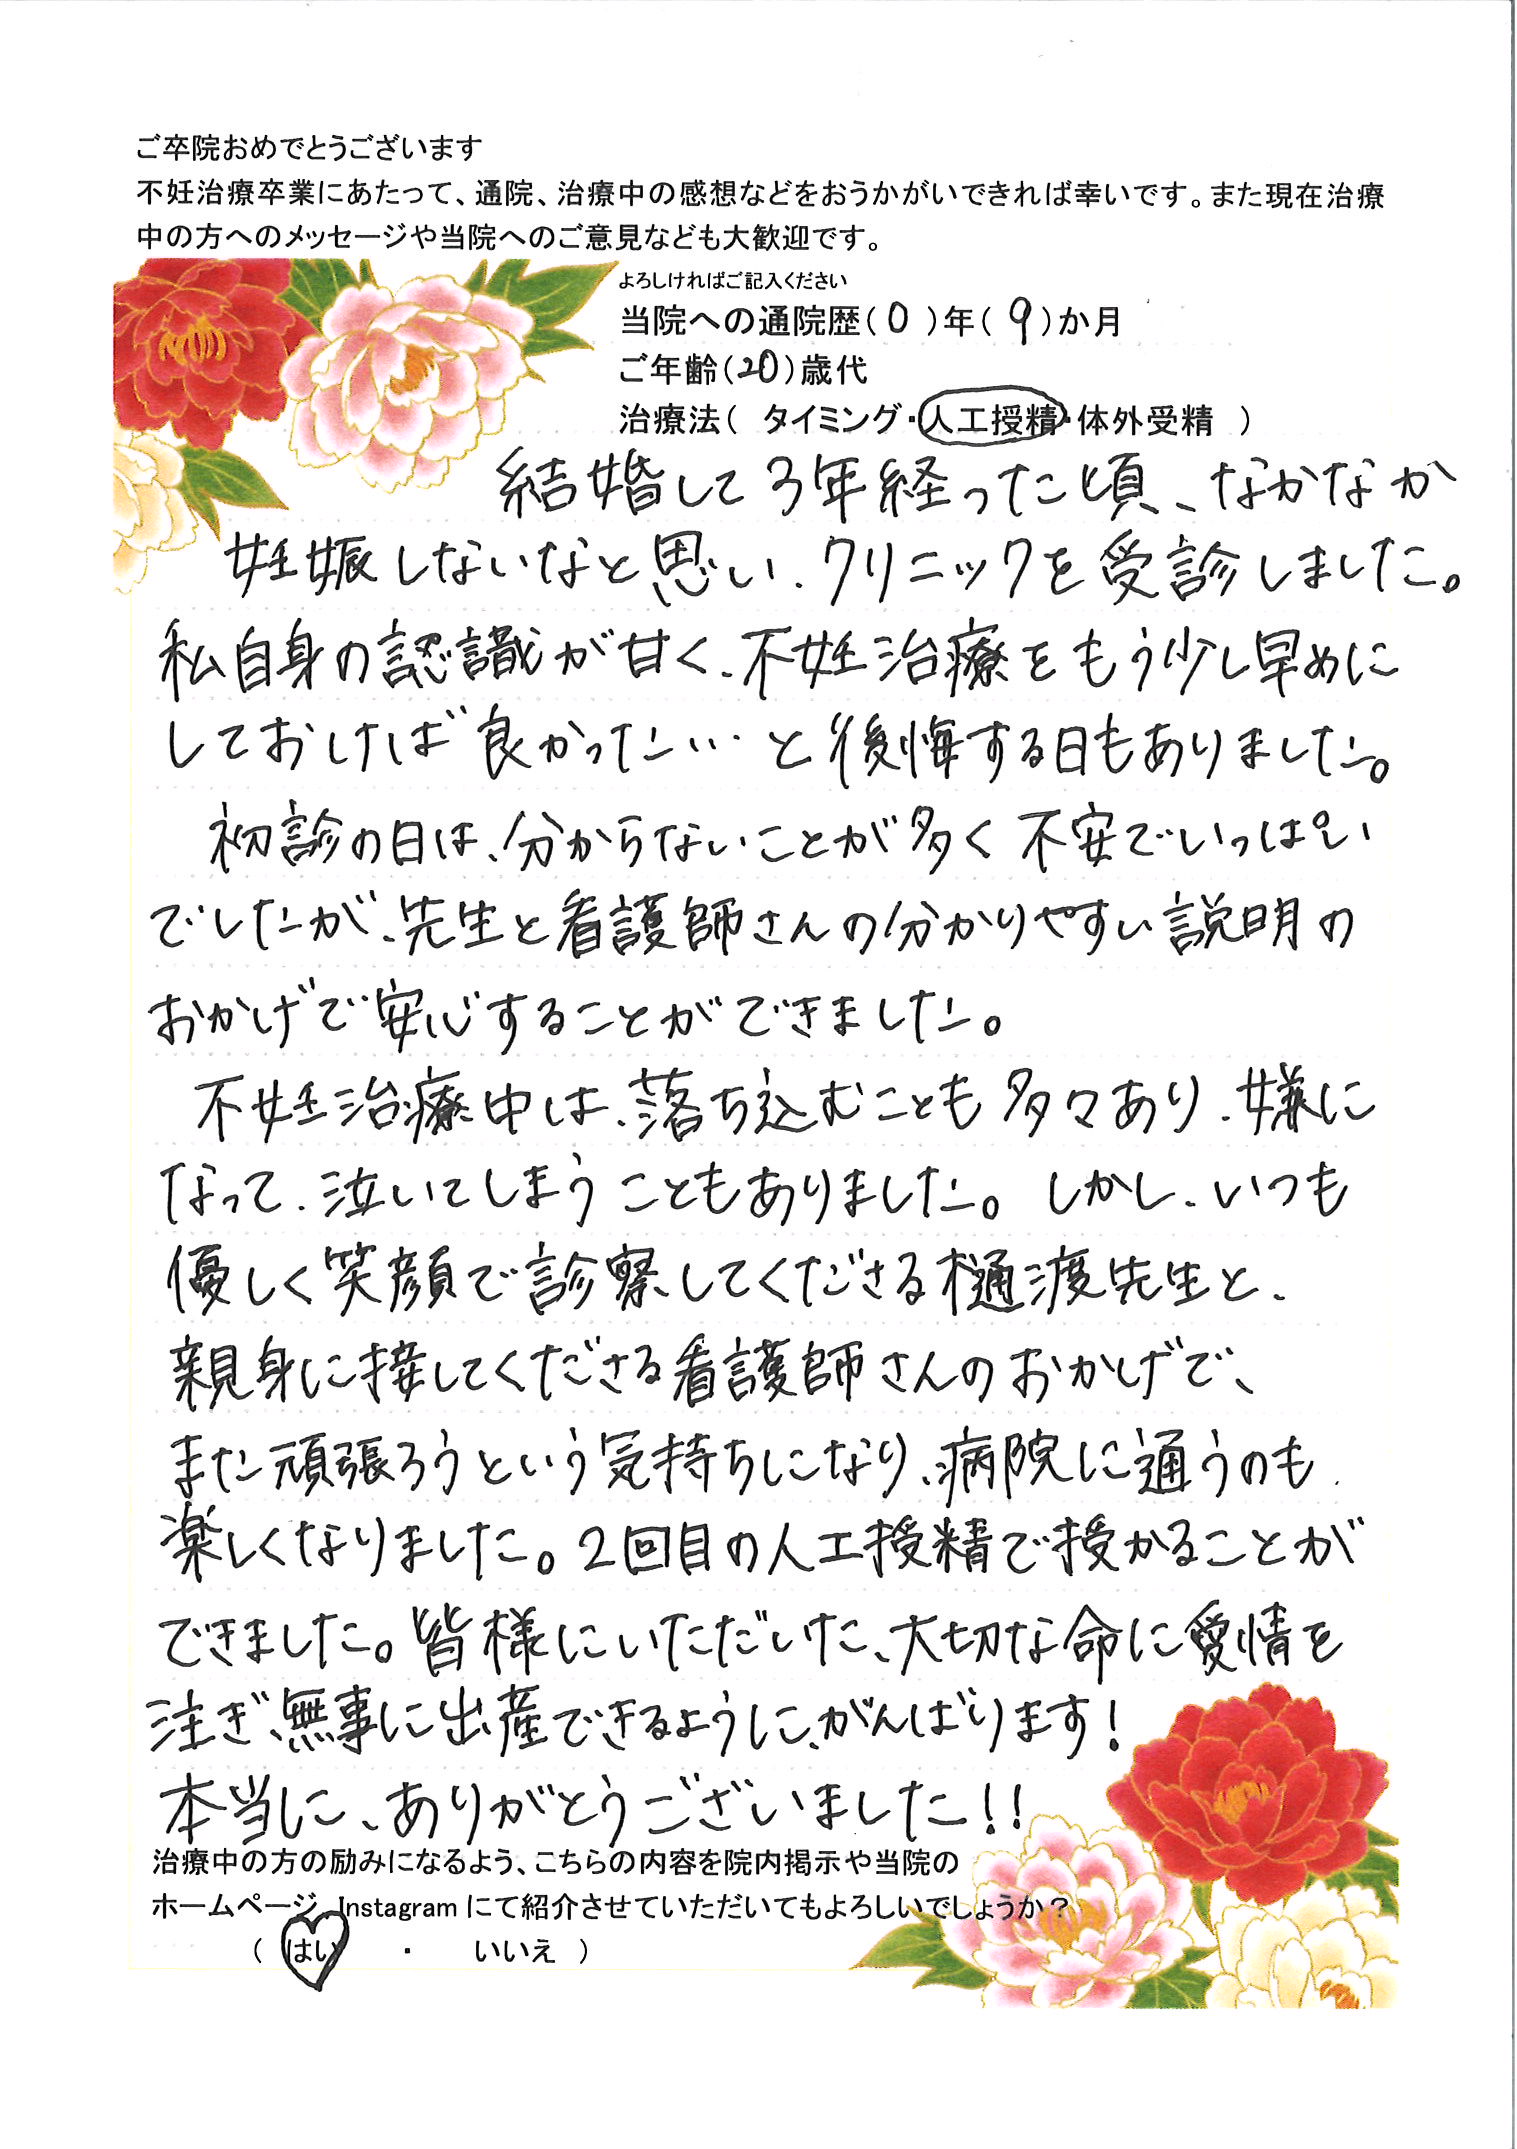 ご卒院おめでとうございます
不妊治療卒業にあたって、通院、治療中の感想などをおうかがいできれば幸いです。また現在治療
中の方へのメッセージや当院へのご意見なども大歓迎です。
よろしければご記入ください
当院への通院歴(0)年(9)か月
ご年齢(20)歳代
治療法( タイミング・人工授精・体外受精 )
結婚して3年経った頃、なかなか
妊娠しないなと思い、クリニックを受診しました。
私自身の認識が甘く、不妊治療をもう少し早めに
しておけば良かった…と後悔する日もありました。
初診の日は、分からないことが多く不安でいっぱい
でしたが、先生と看護師さんの分かりやすい説明の
おかげで安心することができました。
不妊治療中は、落ち込むことも多々あり、嫌に
なって、泣いてしまうこともありました。しかし、いつも
優しく笑顔で診察してくださる樋渡先生と、
親身に接してくださる看護師さんのおかげで、
また頑張ろうという気持ちになり、病院に通うのも
楽しくなりました。2回目の人工授精で授かることが
できました。皆様にいただいた、大切な命に愛情を
注ぎ、無事に出産できるように、がんばります!
本当に、ありがとうございました!!
治療中の方の励みになるよう、こちらの内容を院内掲示や当院の
ホームページ、Instagramにて紹介させていただいてもよろしいでしょうか?
( はい ・ いいえ )